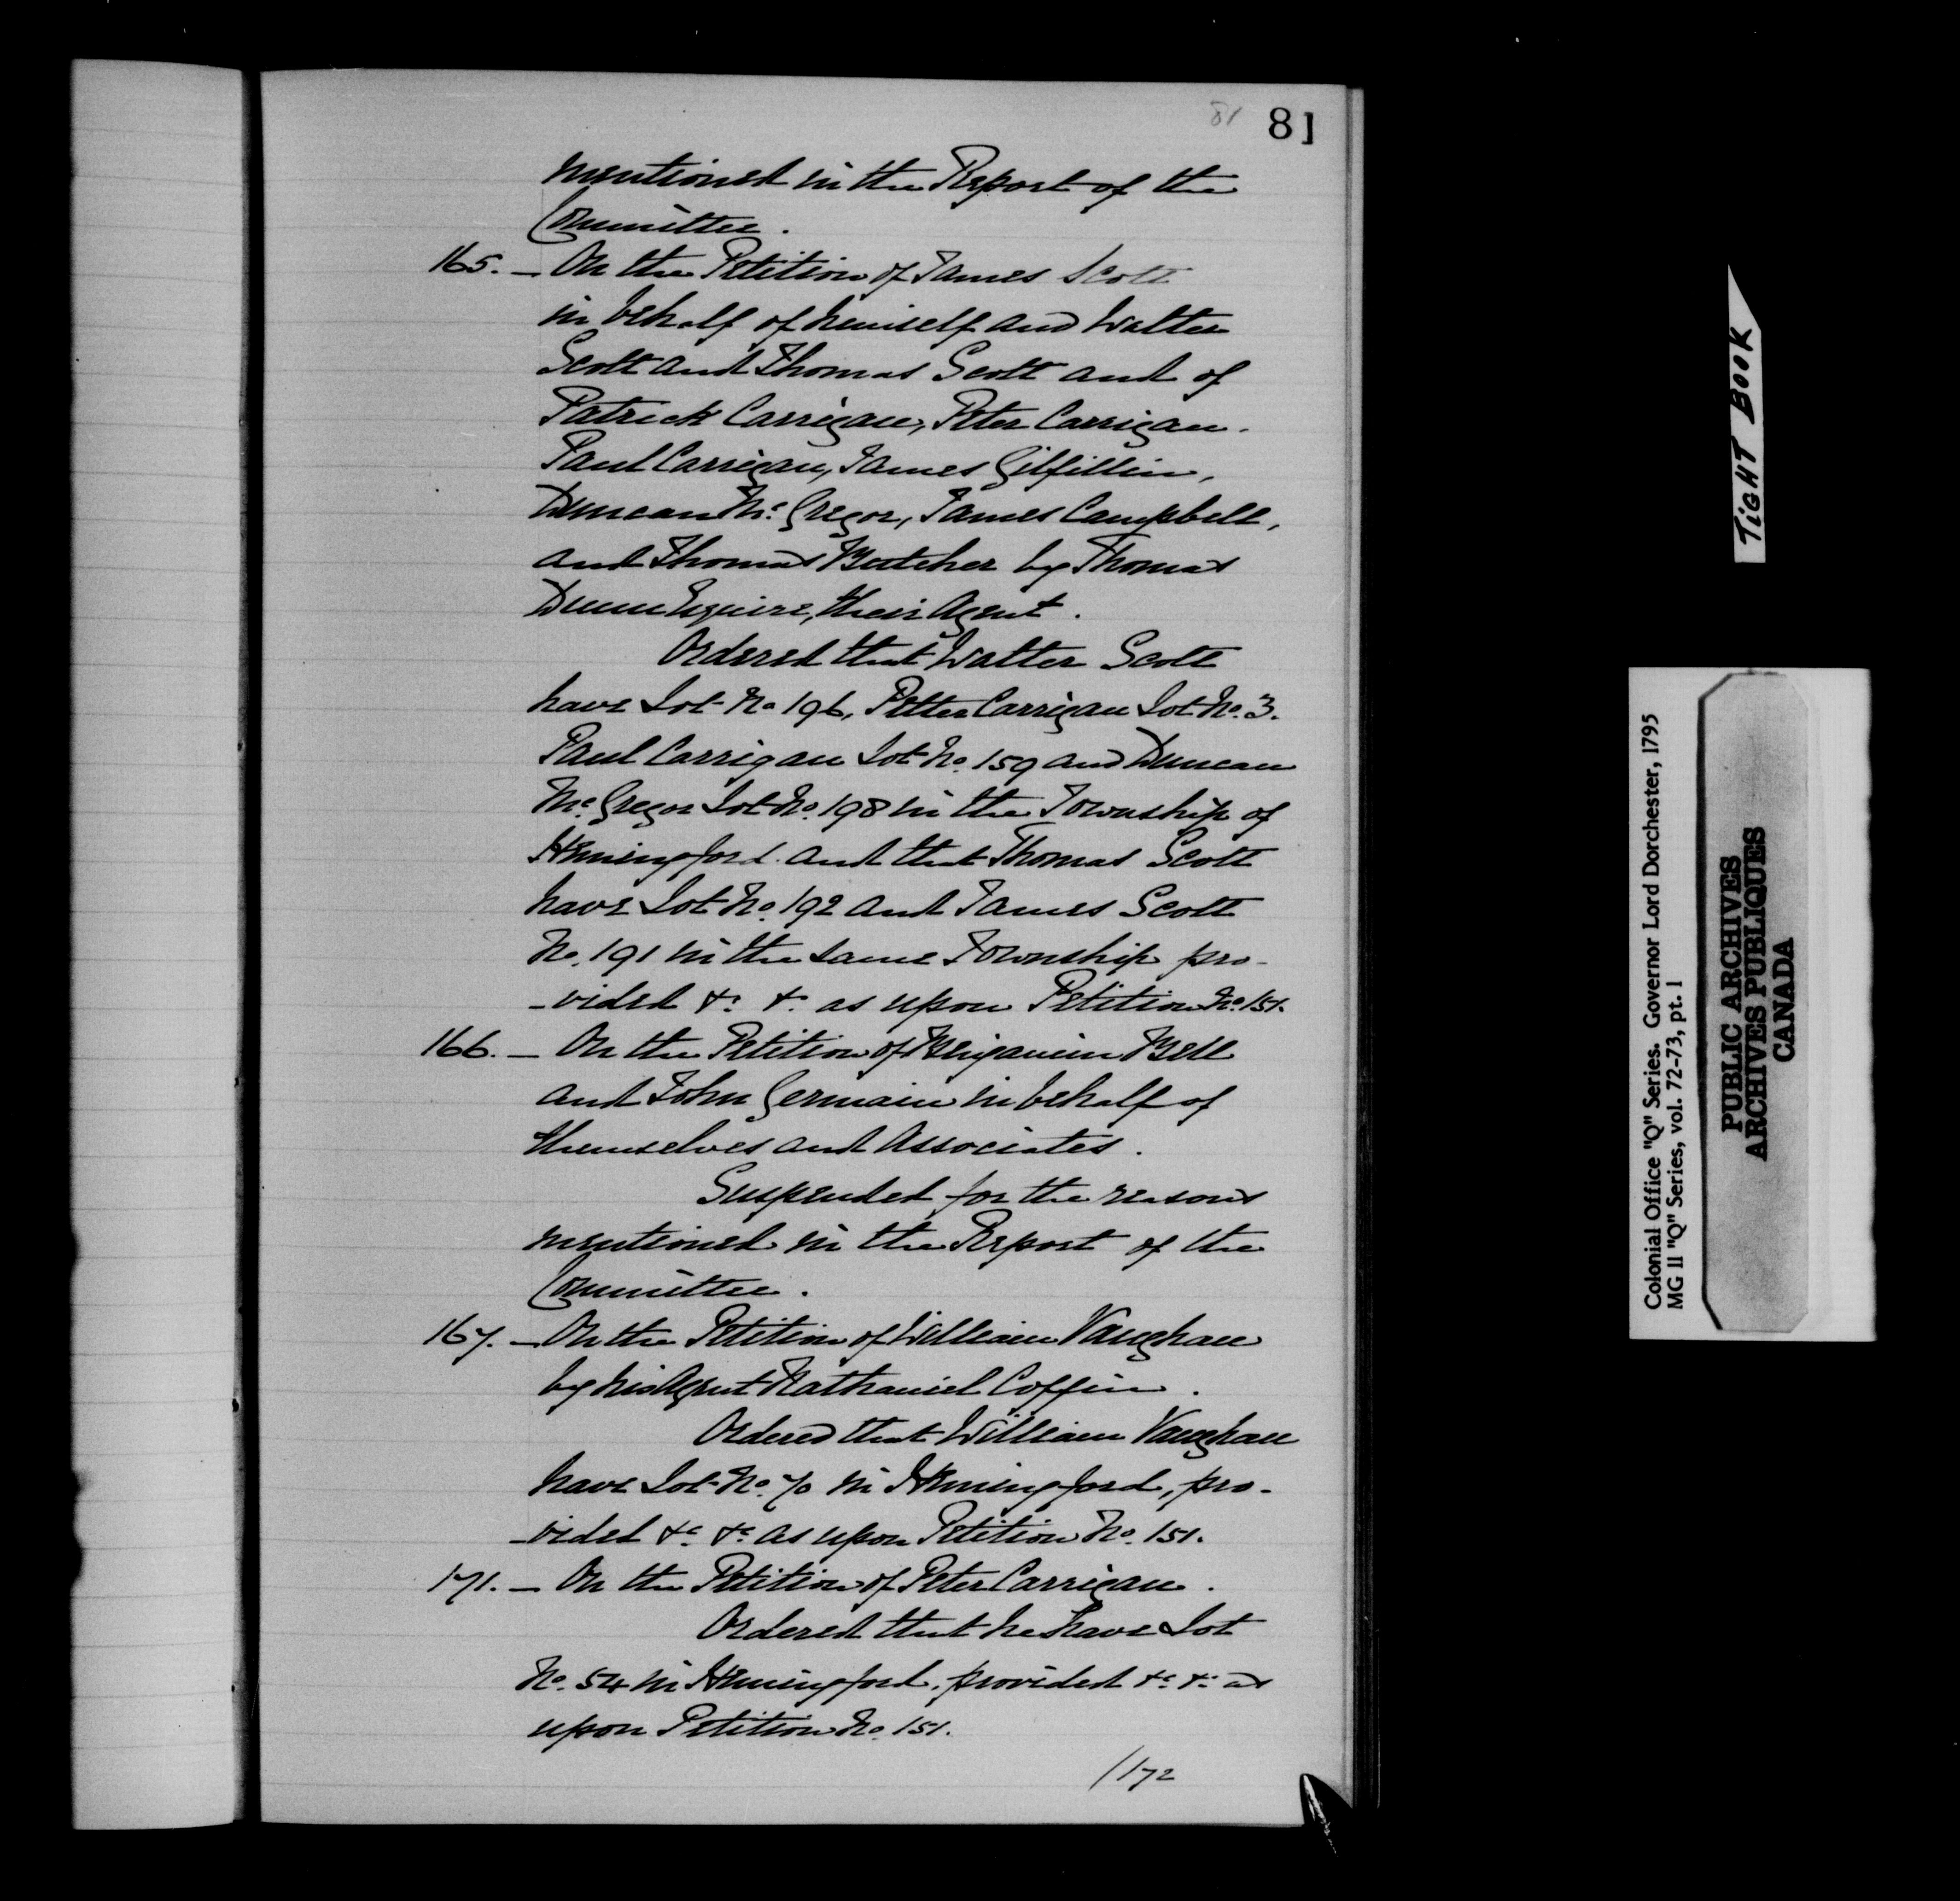 81 81
mentioned in the Report of the
Committee.
165. – On the Petition of James Scott
in behalf of himself and Walter
Scott and Thomas Scott and of
Patrick Carrigan, Peter Carrigan.
Paul Carrigan, James Gilfillin,
Duncan Mc. Gregor, James Campbell,
and Thomas Butcher by Thomas
Dunn Esquire, their Agent.
Ordered that Walter Scott
have Lot No 196, Petter Carrigan Lot No. 3.
Paul Carrigan Lot No. 159 and Duncan
Mc. Gregor Lot No. 198 in the Township of
Hemingford. and that Thomas Scott
have Lot No. 192 and James Scott
No. 191 in the same Township pro-
-vided &c. &c. as upon Petition No. 151.
166. – On the Petition of Benjamin Bell
and John Germain in behalf of
themselves and Associates.
Suspended for the reasons
mentioned in the Report of the
Committee.
167. – On the Petition of William Vaughan
by his Agent Nathaniel Coffin.
Ordered that William Vaughan
have Lot No. 70 in Hemingford, pro-
-vided &c. &c. as upon Petition No. 151.
171. – On the Petition of Peter Carrigan.
Ordered that he have Lot
No. 54 in Hemingford, provided &c. &c. as
upon Petition No. 151.
/172
TIGHT BOOK
Colonial Office "Q" Series. Governor Lord Dorchester, 1795
MG 11 "Q" Series, vol. 72-73, pt. 1
PUBLIC ARCHIVES
ARCHIVES PUBLIQUES
CANADA